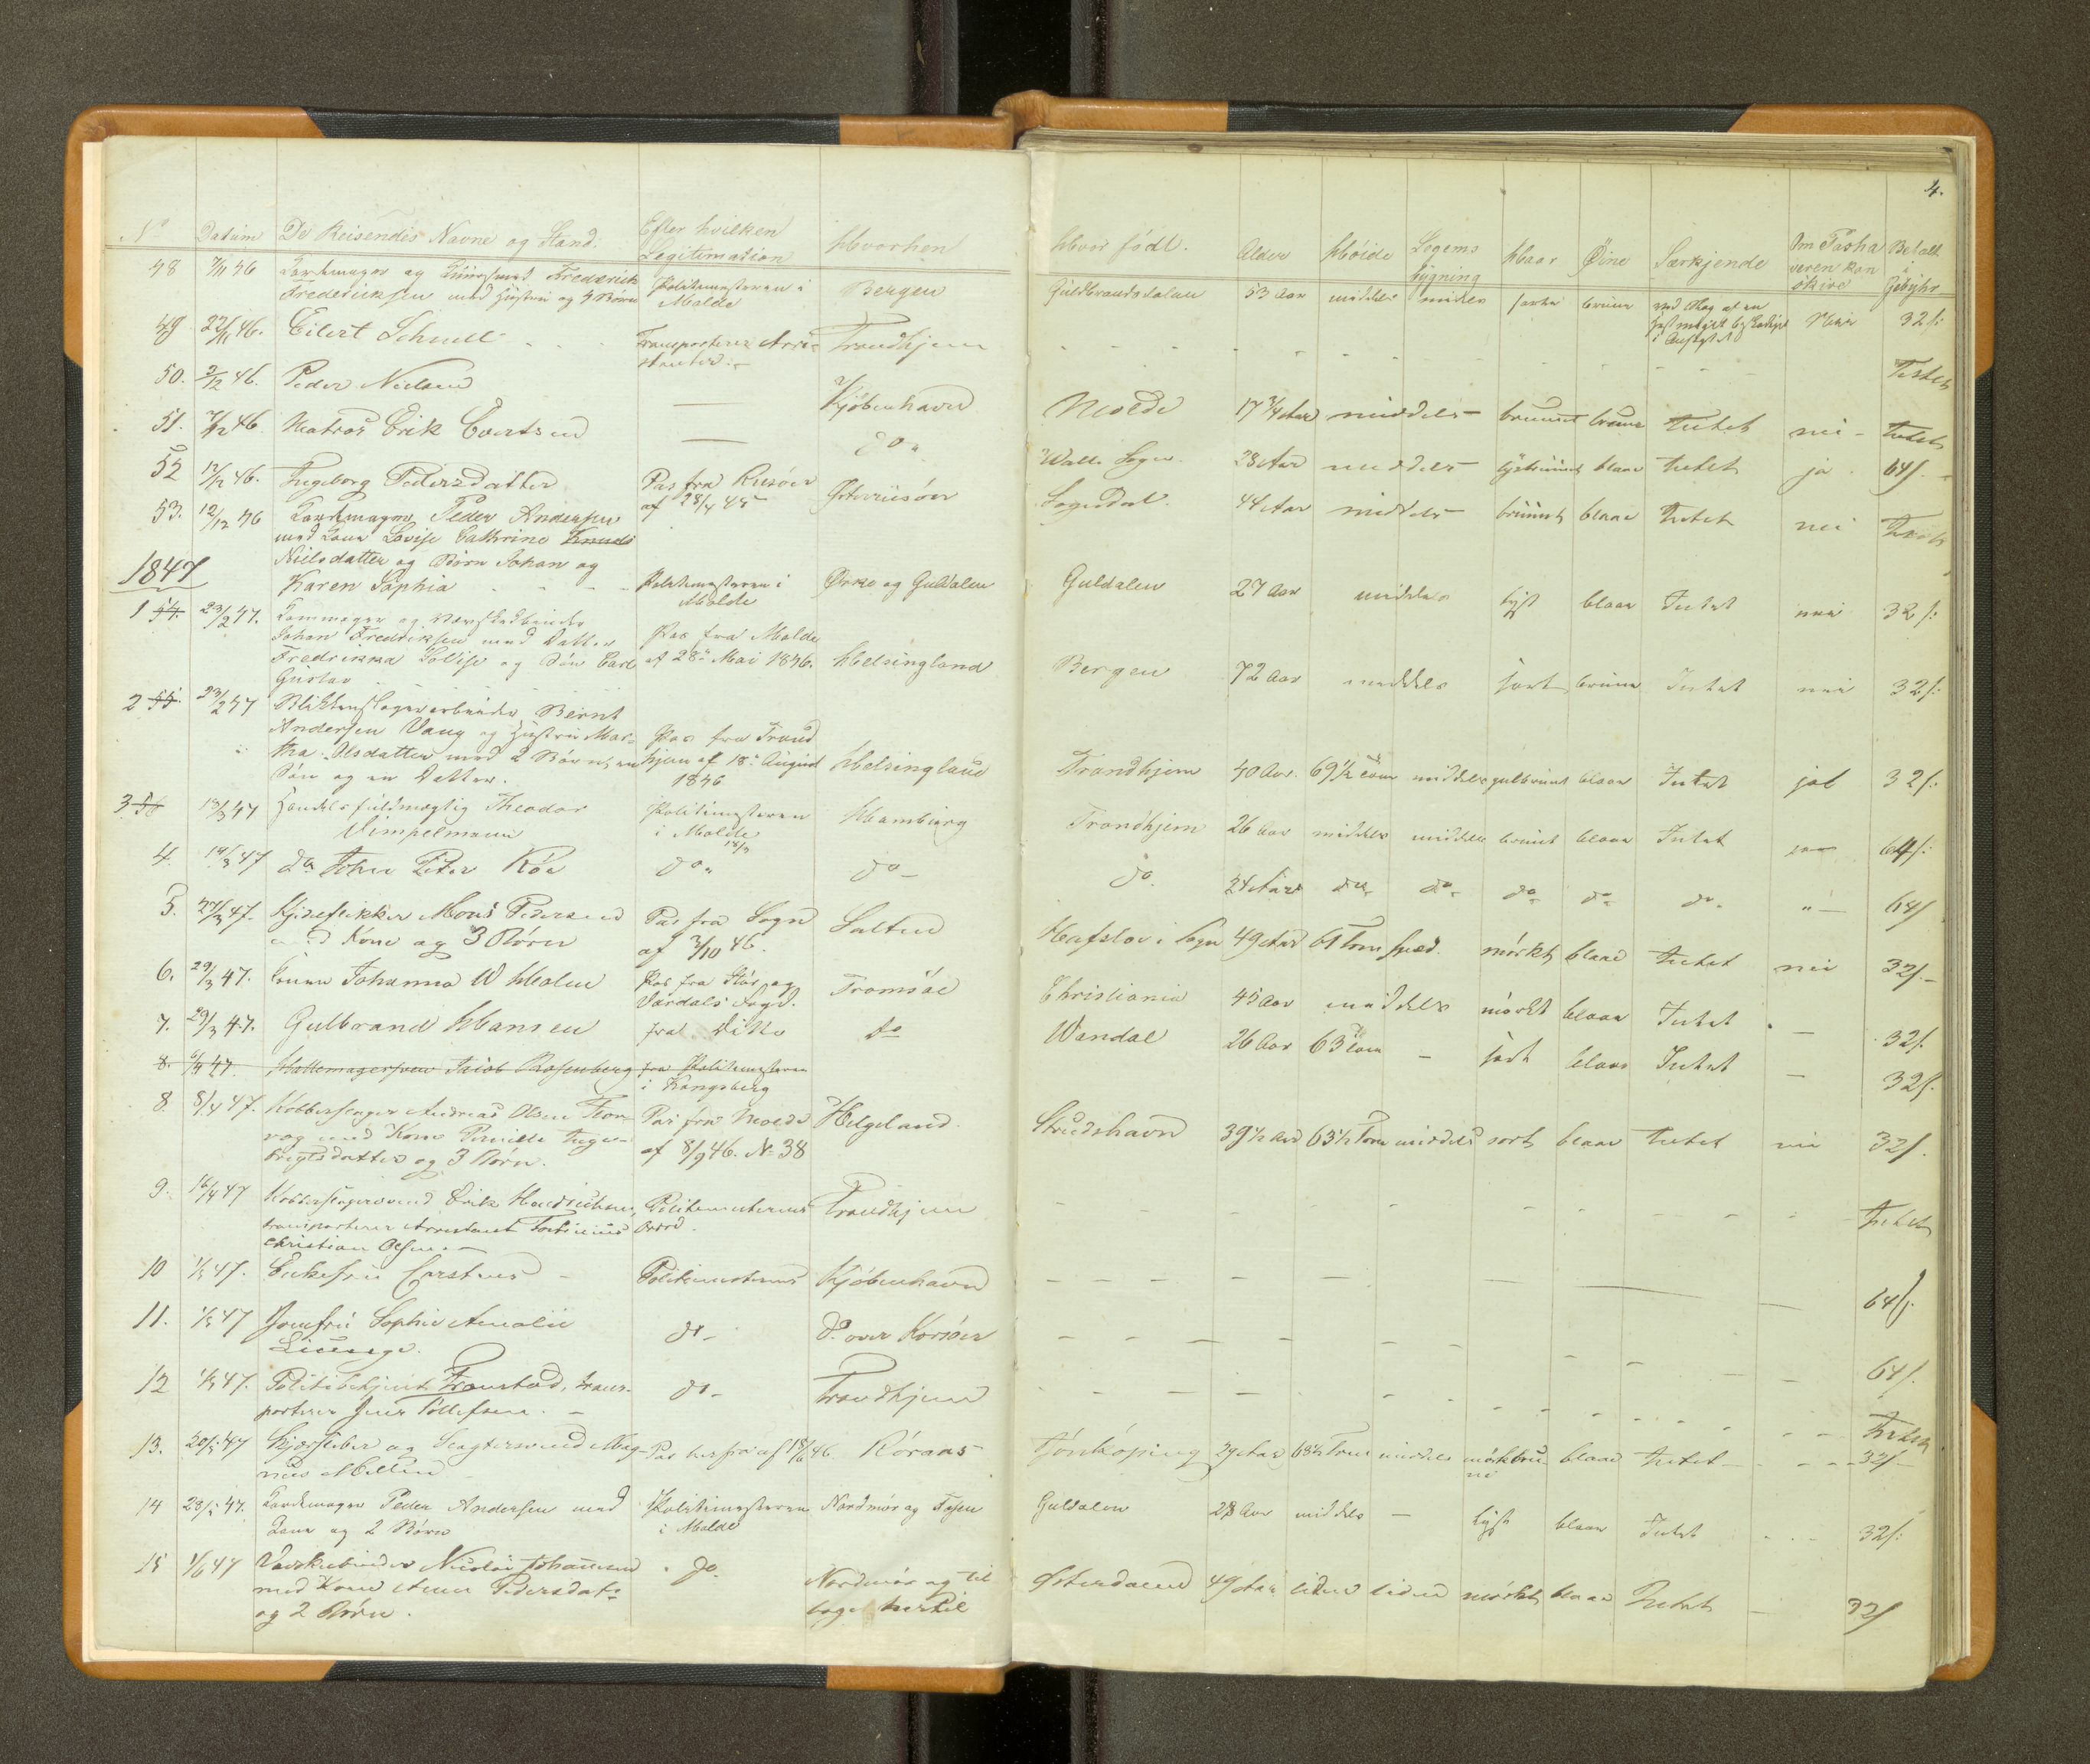 4.
No Datum De Reisendes Navne og Stand. Efter hvilken Legitimation Hvorhen Hvor født. Alder Høide Legems bygning Haar Øine Særkjende Om Pasha veren kan skrive Betalt i Gebyhr
48 7/11 46 og Frederick Politimesteren i Bergen Guldbrandsdalen 53 Aar middels middels sorte brune Nei 32/:
Fredericksen med Hustru og 4 Børn Molde
49 22/11 46. Eilert Schnell Transporterer Arre- Trondhjem
stanter Intet
50. 2/12 46. Peder Nielsen Kjøbenhavn Molde 17 3/4 Aar middels brunet brune Intet nei Intet
51. 7/12 46. Matros Erik Evertsen do 28 Aar middels blaae Intet ja 64/.
52 12/12 46. Ingeborg Pedersdatter Pas fra Risøer Østerriisøer Sogndal 44 Aar middels brunet blaae Intet nei Intet
af 28/4 45
53. 12/12 46 Peder Andersen
med Kone Lovise Cathrine Knuds
Nielsdatter og Børn Johan og
Karen Sophia Politimesteren i Orke og Guldalen Guldalen 27 Aar middels lyst blaae Intet nei 32/:
Molde
1847
1 54. 23/2 47. og
Johan Fredriksen med Datter Pas fra Molde
Fredrikka Lovise og Søn Carl af 28de Mai 1846. Helsingland Bergen 72 Aar middels sort brune Intet nei 32/:
Gustav
2 55. 23/2 47 Blikkenslagerarbeider Bernt
Andersen Vang og Hustru Mar- Pas fra Trond
tha Olsdatter med 2 Børn, en hjem af 18de August Helsingland Trondhjem 40 Aar. 69 1/2 Tom middels gulbrunt blaae Intet ja 32/:
Søn og en Datter. 1846
3 56 13/3 47 Handelsfuldmægtig Theodor Politimesteren Hamburg Trondhjem 26 Aar middels middels brunt blaae Intet 64/:
Dimpelmann i Molde
4. 14/3 47 do John Peter Röe do do do 24 Aar do do do do do " 64/
5. 27/3 47. Mons Pedersen Pas fra Sogn Salten Hafslo i Sogn 49 Aar 61 Tom mørkt blaae Intet nei 32/.
med Kone og 3 Børn af 3/10 46.
6. 29/3 47. Johanna W Holm Pas fra Stör og Tromsøe Christiania 45 Aar middels mørkt blaae Intet 32/.
Værdals Fogd.
7. 29/3 47. Gulbrand Hansen fra Ditto do Mandal 26 Aar 63 Tom sort blaae Intet 32/.
8. 6/4 47. Hattemagersvend Jacob Rosenberg fra Politimesteren
i Kongsberg
8. 8/4 47. Kobberslager Andreas Olsen Pas fra Molde Helgeland. Strudshavn 39 1/2 Aar 63 1/2 Tom middels sort blaae Intet nei 32/.
med Kone Pernille Inge- af 8/9 46. No 38
brigtsdatter og 3 Børn.
9. 16/4 47 Kobberslagersvend Erik Hendrichsen, Politimesterens Trondhjem Intet
transporterer Arrestant Ord
Christian Olsen
10 1/5 47. Enkefru Carstens Politimesterens Kjøbenhavn 64/.
11. 1/5 47 Jomfru Sophie Amalie do do over Korsöer
Liunge. 64/.
12 1/5 47. Politibetjent Fronstad, trans- do Trondhjem
porterer Jens Tollefsen. Intet
13. 20/5 47 og Slagtersvend Mag- Pas herfra af 18/6 46. Röraas Jönköping 39 Aar 63 1/2 Tom middels mørkbru- blaae Intet 32/
nus Mellin ne
14 28/5 47. Peder Andersen med Politimesteren Nordmør og Fosen Guldalen 28 Aar middels lyst blaae Intet 32/:
Kone og 2 Børn i Molde
15 1/6 47 Nicolai Johannsen do Nordmør og til Østerdalen 49 Aar liden liden mørkt blaae Intet 32/
med Kone Anne Pedersdat: bage hertil
og 2 Børn.